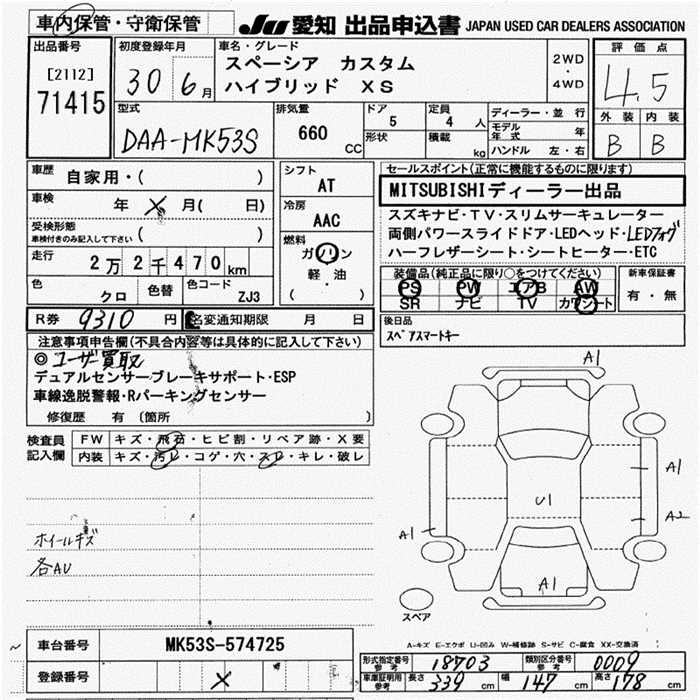 車内保管・守衛保管
JU 愛知 出品申込書 JAPAN USED CAR DEALERS ASSOCIATION
出品番号
[2112]
71415
初度登録年月
30 6月
車名・グレード
スペーシア カスタム
ハイブリッド XS
2WD
・
4WD
評価点
4.5
外装 内装
B B
型式
DAA-MK53S
排気量
660 CC
ドア
5
形状
定員
4 人
積載 kg
ディーラー・並行
モデル年式 年
ハンドル 左・右
車歴 自家用・( )
車検 年 X 月( 日)
受検形態
車検付きのみ記入して下さい ( )
走行 2万2千470km
色 クロ 色替 色コード ZJ3
シフト
AT
冷房
AAC
燃料
ガソリン
軽・油
( )
セールスポイント(正常に機能するものに限ります)
MITSUBISHIディーラー出品
スズキナビ・TV・スリムサーキュレーター
両側パワースライドドア・LEDヘッド・LEDフォグ
ハーフレザーシート・シートヒーター・ETC
装備品(純正品に限り○をつけてください)
PS PW エアB AW
SR ナビ TV カワシート
新車保証書
有・無
R券 9310 円
名変通知期限 月 日
後日品
スペアスマートキー
注意事項申告欄(不具合内容等は具体的に記入して下さい)
◎ユーザー買取
デュアルセンサーブレーキサポート・ESP
車線逸脱警報・Rパーキングセンサー
修復歴 有 (箇所 )
検査員
記入欄
FW キズ・飛石・ヒビ割・リペア跡・X要
内装 キズ・汚レ・コゲ・穴・スレ・キレ・破レ
ホイールキズ
各AU
A1
A1
U1
A2
A1
A1
スペア
A-キズ E-エクボ U-凹み W-補修跡 S-サビ C-腐食 XX-交換済
車台番号 MK53S-574725
登録番号 X
形式指定番号 参考 18703
類別区分番号 参考 0009
車庫証明用 参考 長さ 339 cm 幅 147 cm 高さ 178 cm